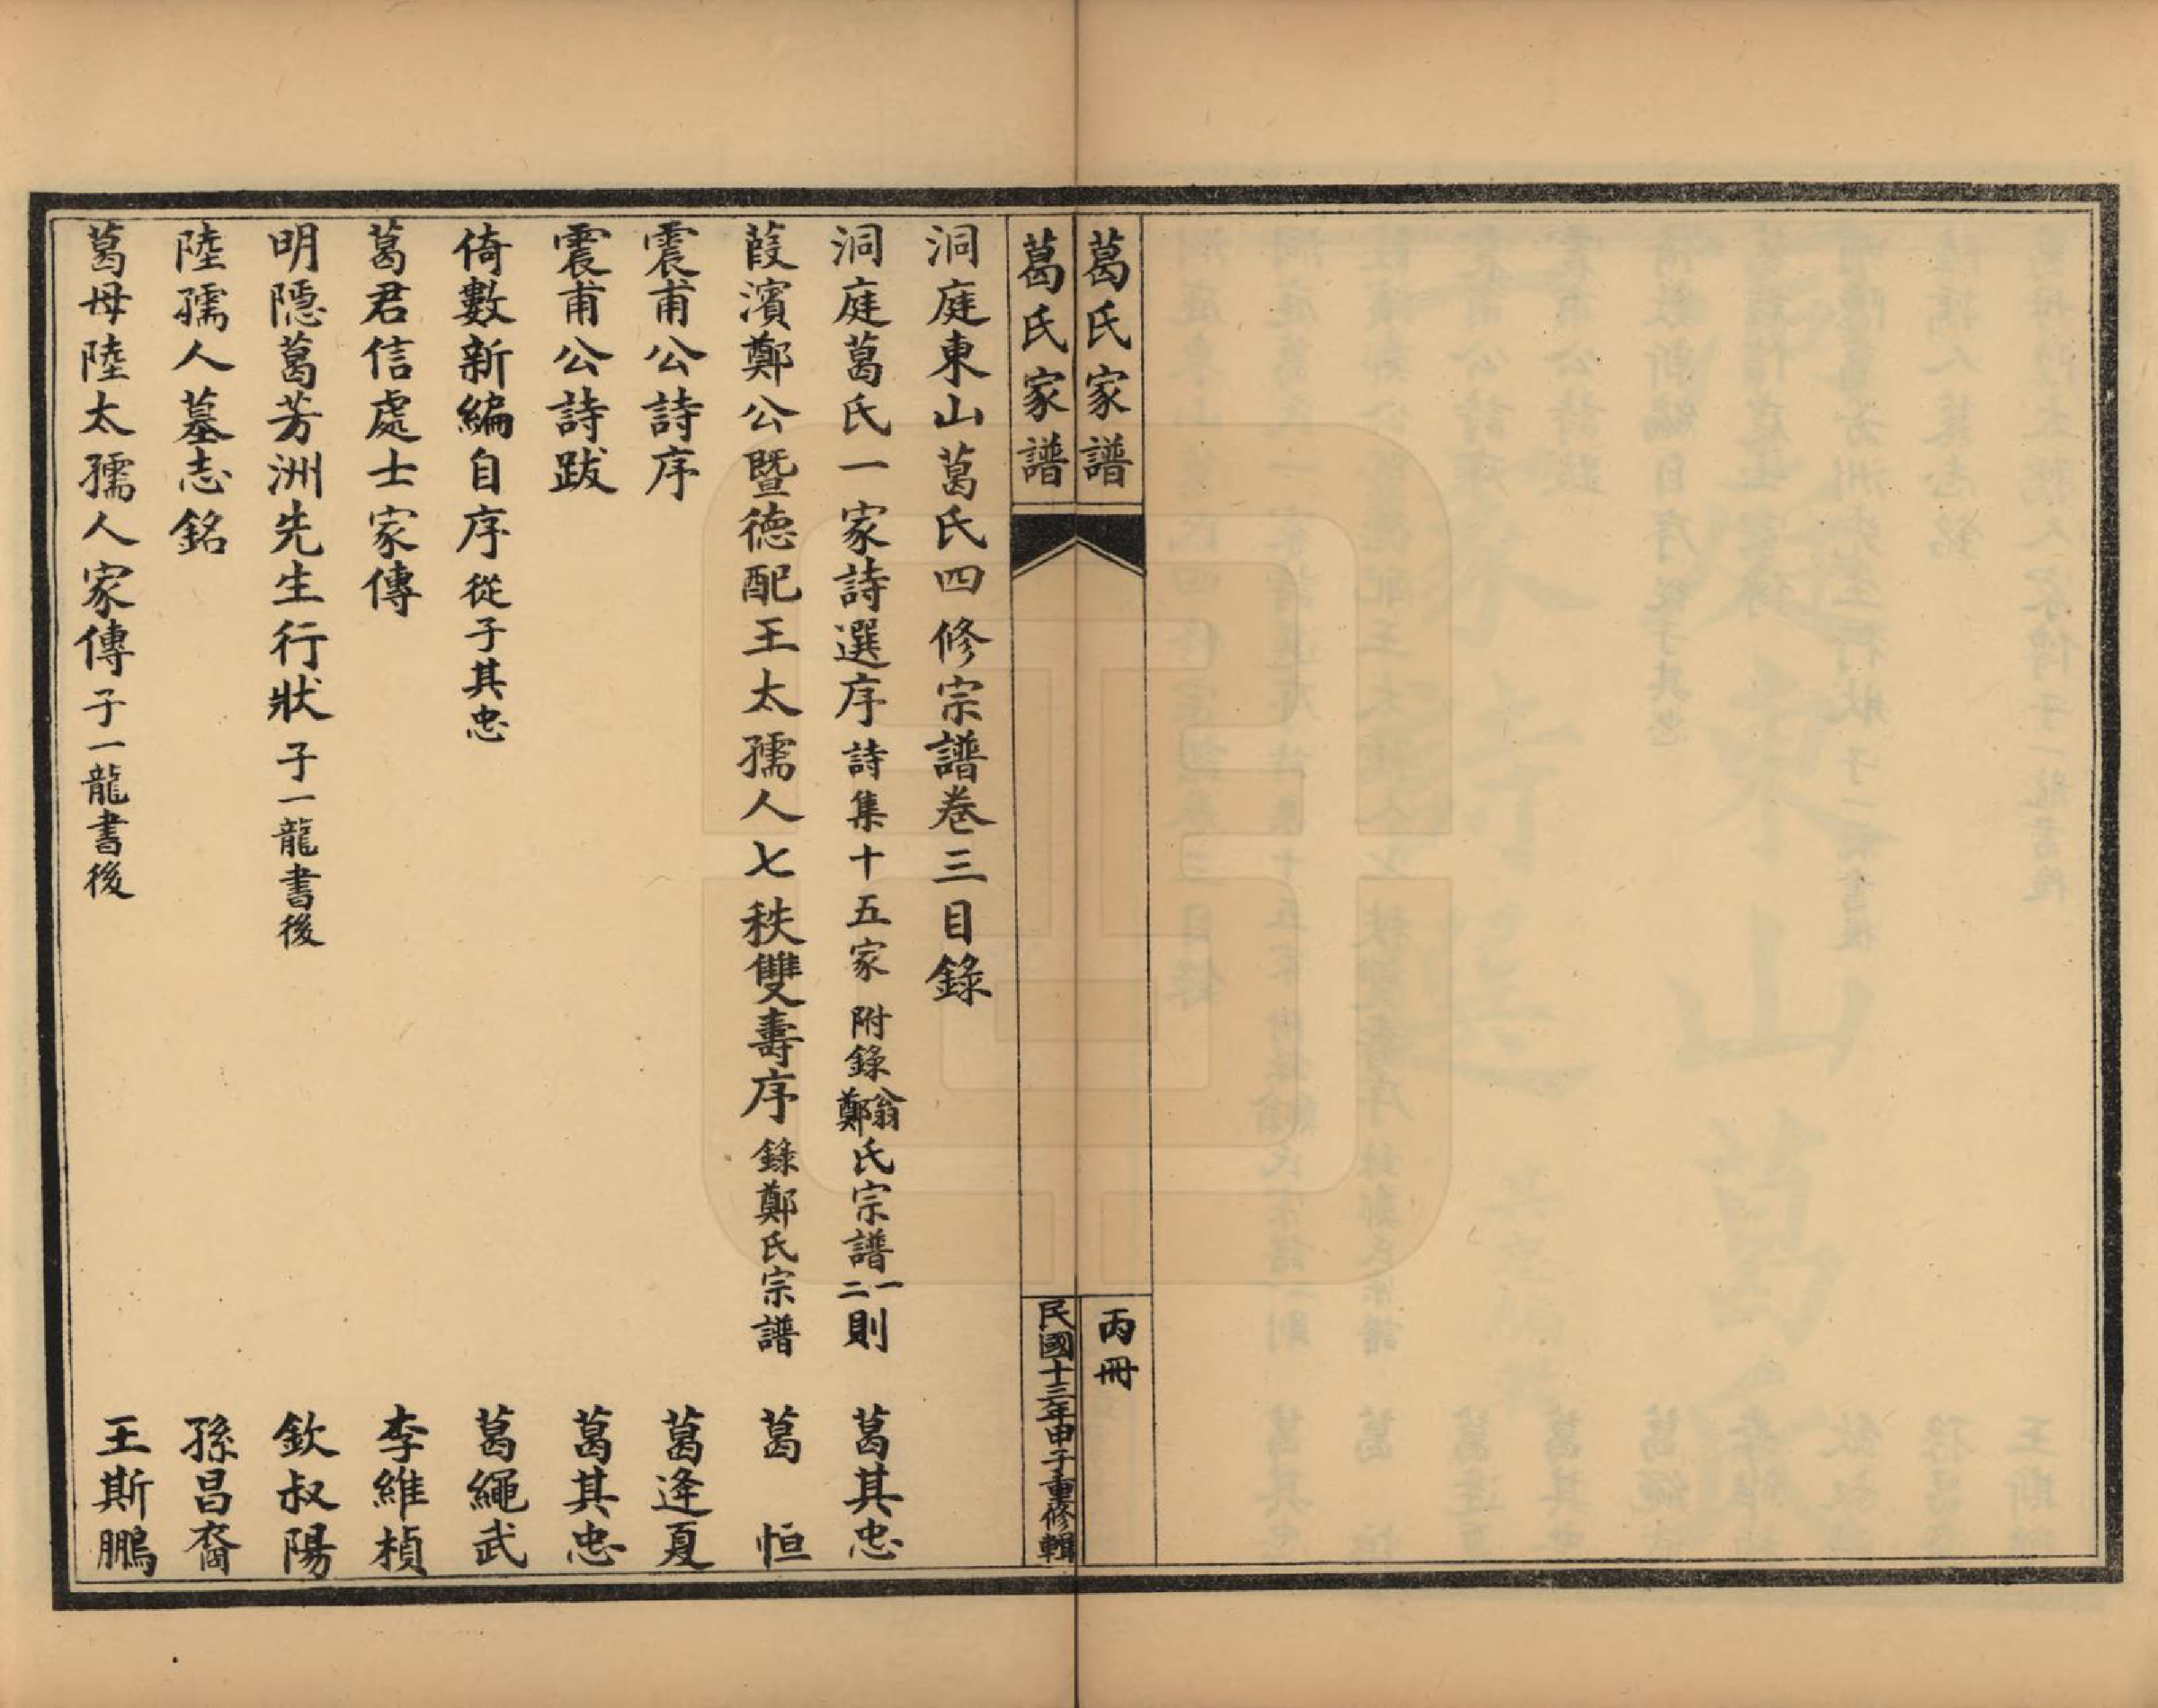 葛氏家譜
丙冊
葛氏家譜
民國十三年甲子重修輯
洞庭東山葛氏四修宗譜卷三目錄
洞庭葛氏一家詩選序 詩集十五家 附錄翁鄭氏宗譜一二則 葛其忠
葭濱鄭公暨德配王太孺人七秩雙壽序 錄鄭氏宗譜 葛恒
震甫公詩序 葛逢夏
震甫公詩跋 葛其忠
倚數新編自序 從子其忠 葛繩武
葛君信處士家傳 李維楨
明隱葛芳洲先生行狀 子一龍書後 欽叔陽
陸孺人墓志銘 孫昌裔
葛母陸太孺人家傳 子一龍書後 王斯鵬